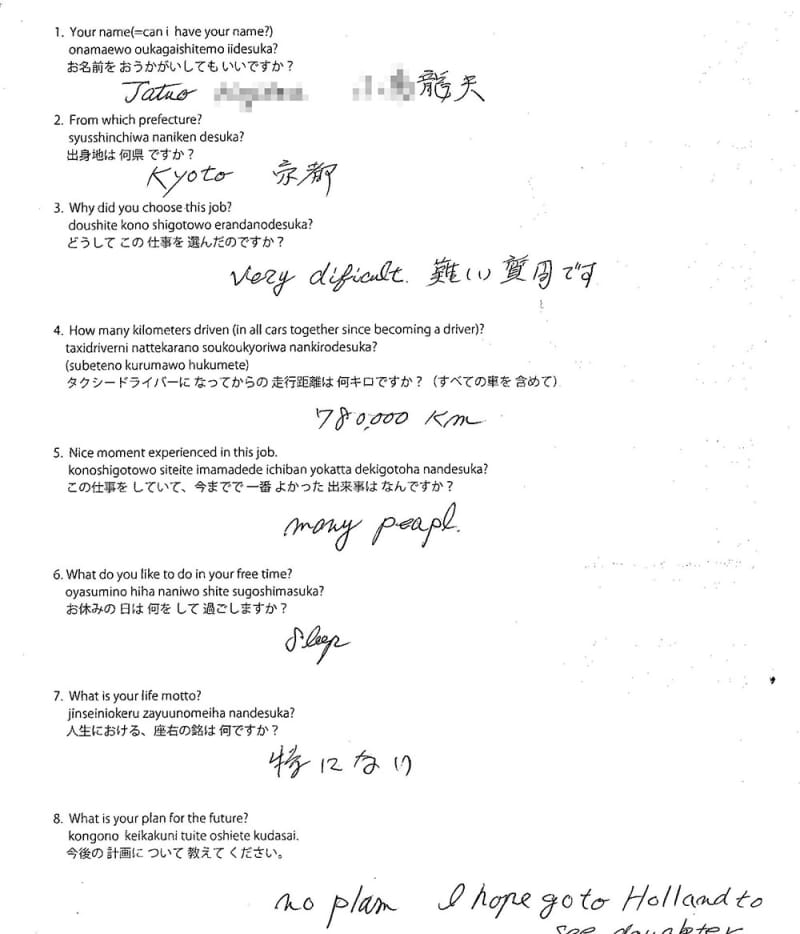 1. Your name(=can i have your name?)
onamaewo oukagaishitemo iidesuka?
お名前を おうかがいしても いいですか？
Tatuo 龍夫
2. From which prefecture?
syusshinchiwa naniken desuka?
出身地は 何県 ですか？
Kyoto 京都
3. Why did you choose this job?
doushite kono shigotowo erandanodesuka?
どうして この 仕事を 選んだのですか？
Very dificult. 難しい 質問です
4. How many kilometers driven (in all cars together since becoming a driver)?
taxidriverni nattekarano soukoukyoriwa nankirodesuka?
(subeteno kurumawo hukumete)
タクシードライバーに なってからの 走行距離は 何キロですか？（すべての車を 含めて）
780,000 Km
5. Nice moment experienced in this job.
konoshigotowo siteite imamadede ichiban yokatta dekigotoha nandesuka?
この仕事を していて、今までで 一番 よかった 出来事は なんですか？
many peapl.
6. What do you like to do in your free time?
oyasumino hiha naniwo shite sugoshimasuka?
お休みの 日は 何を して 過ごしますか？
Sleep
7. What is your life motto?
jinseiniokeru zayuunomeiha nandesuka?
人生における、座右の銘は 何ですか？
特になり
8. What is your plan for the future?
kongono keikakuni tuite oshiete kudasai.
今後の 計画に ついて 教えて ください。
no plam I hope go to Holland to
see daughter